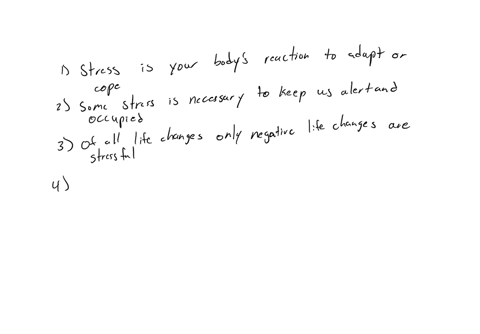 1) Stress is your body's reaction to adapt or
cope
2) Some stress is necessary to keep us alert and
occupied
3) Of all life changes only negative life changes are
stressful
4)